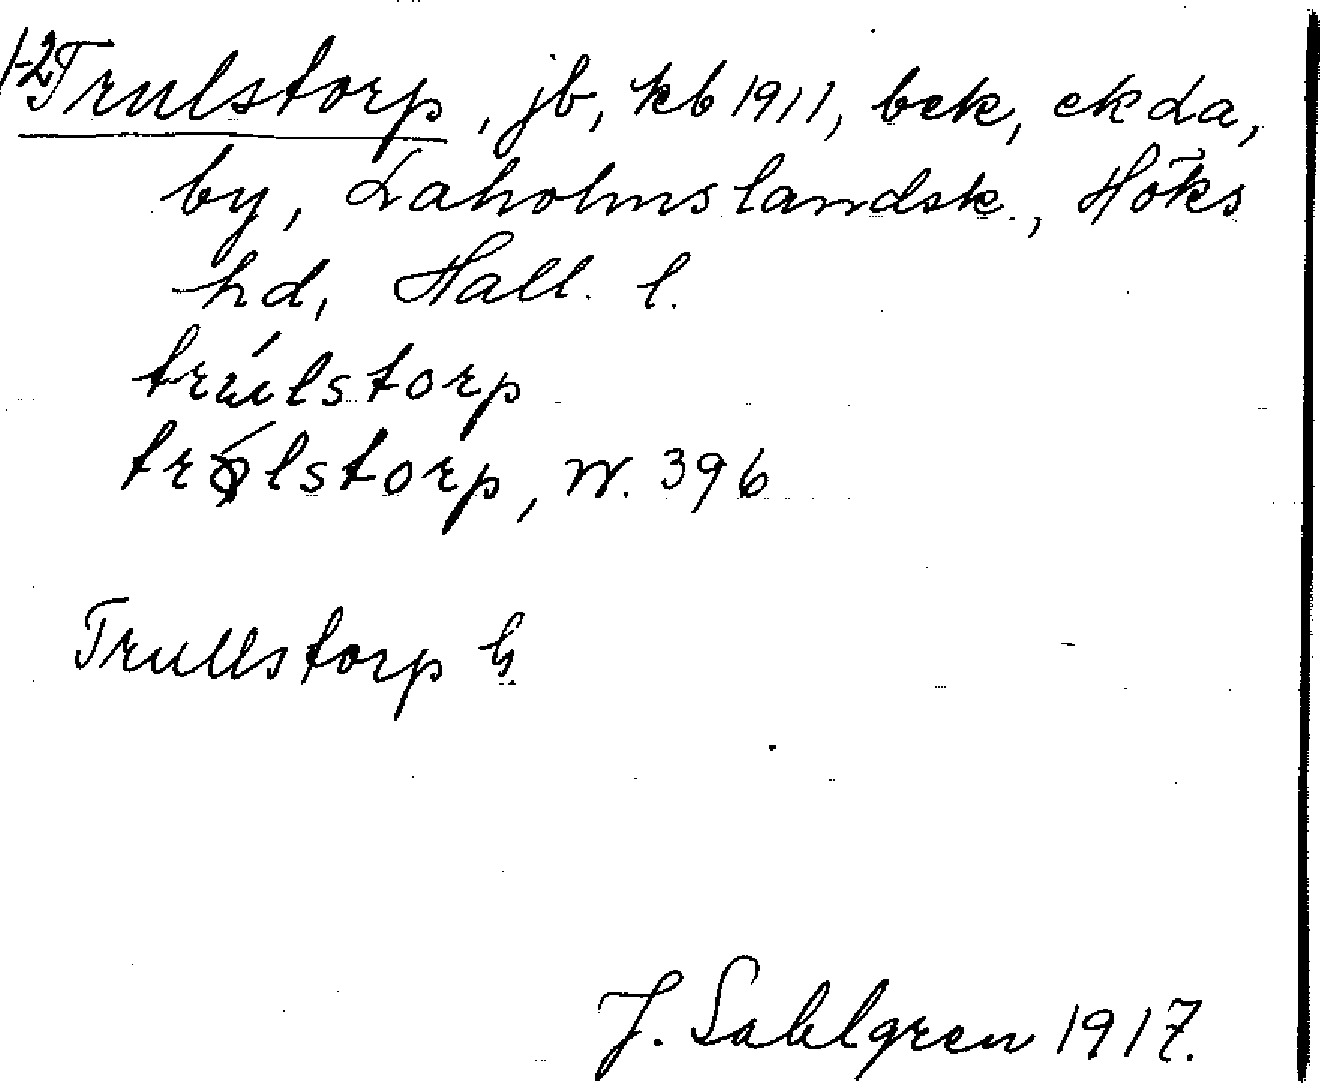 1-2 Trulstorp, jb, kb 1911, bek, ekda,
by, Laholms landsk., Höks
hd, Hall. l.
trúlstorp
trǿlstorp, W. 396
Trullstorp G.
J. Sahlgren 1917.